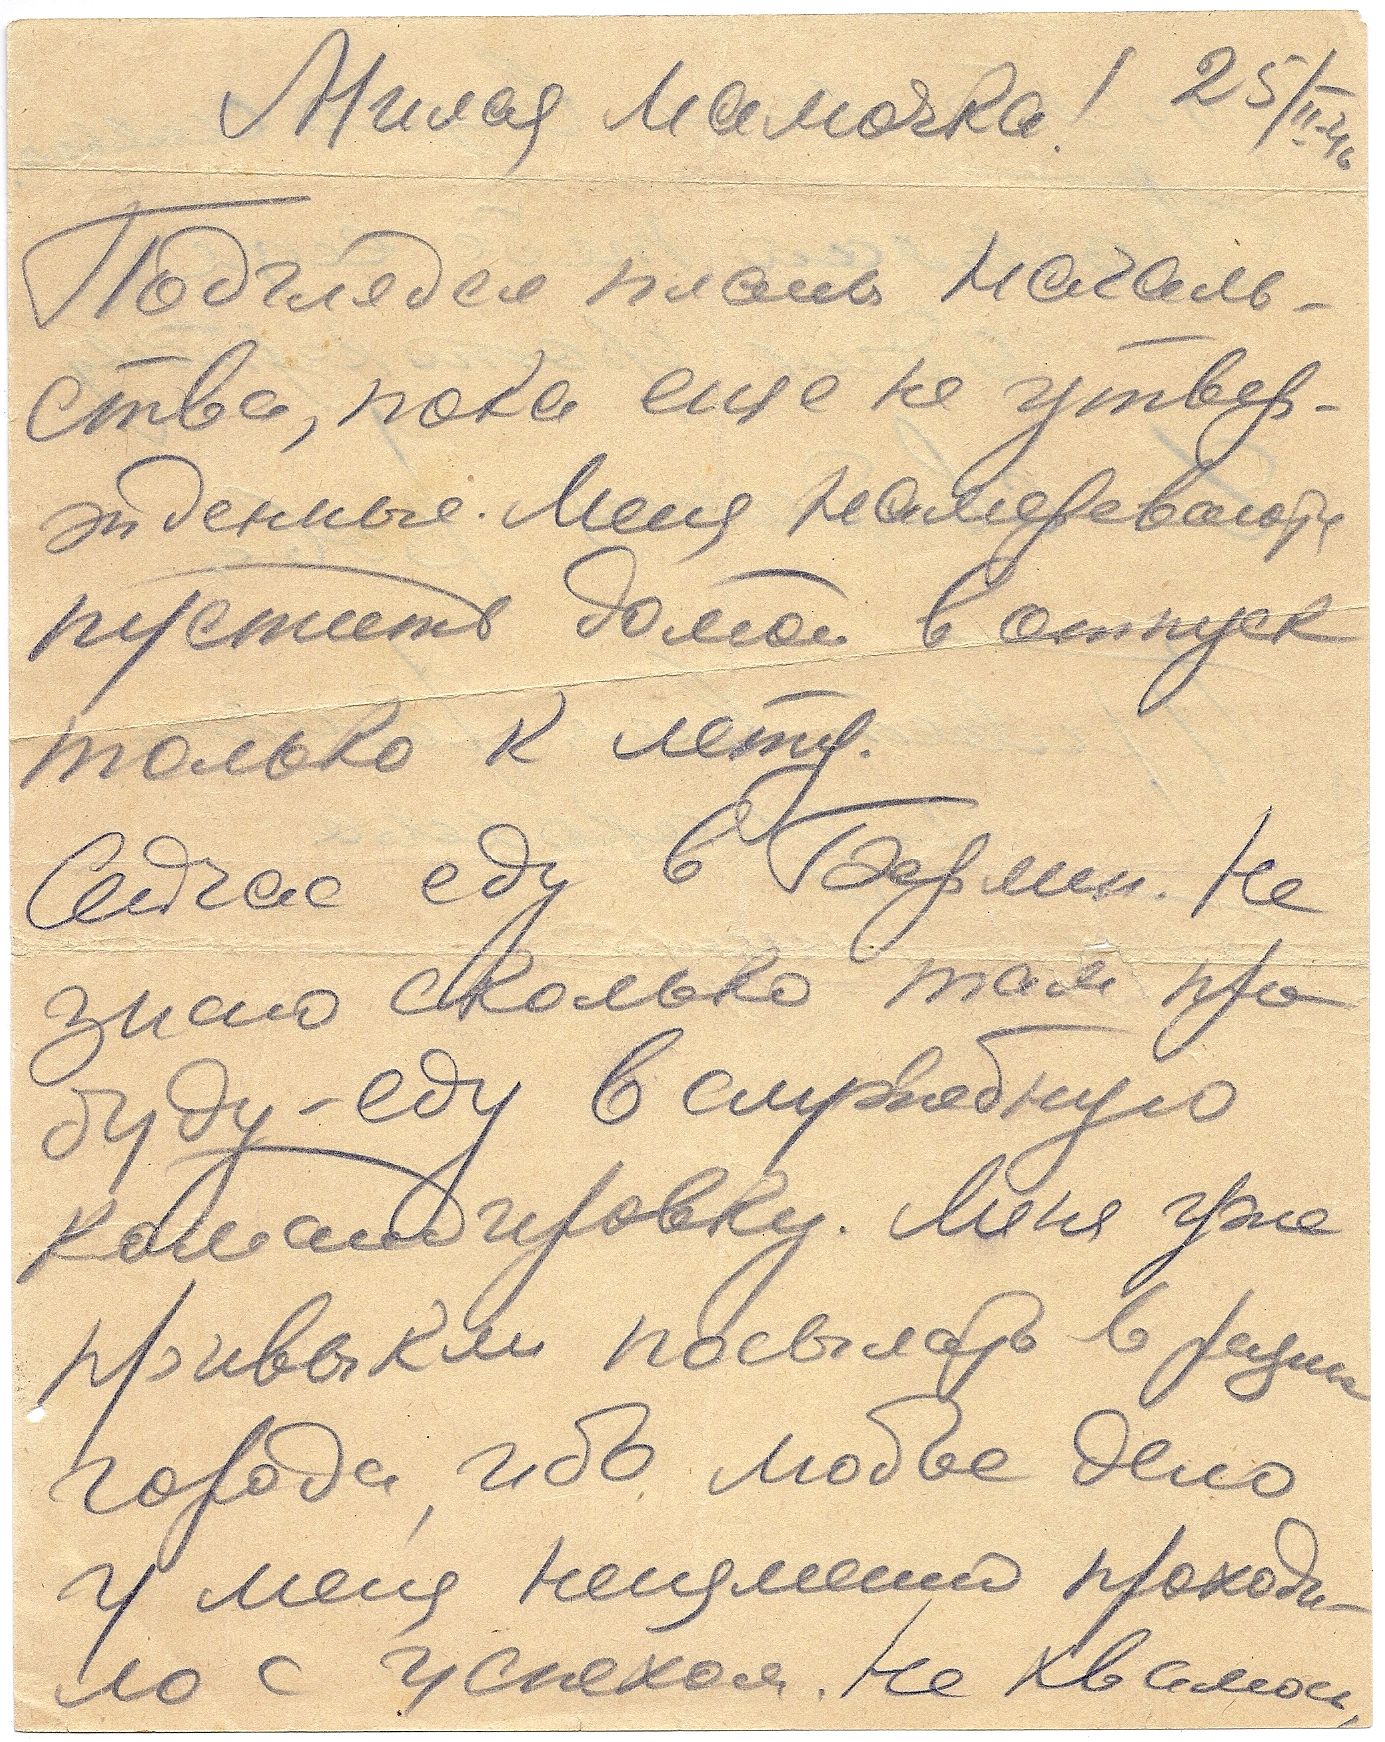 Милая мамочка! 25/II-46
Подглядел планы началь-
ства, пока еще не утвер-
жденные. Меня намереваются
пустить домой в отпуск
только к лету.
Сейчас еду в Берлин. Не
знаю сколько там про
буду - еду в служебную
командировку. Меня уже
привыкли посылать в разные
города, ибо любое дело
у меня неизменно проходи-
ло с успехом. Не хвалюсь,